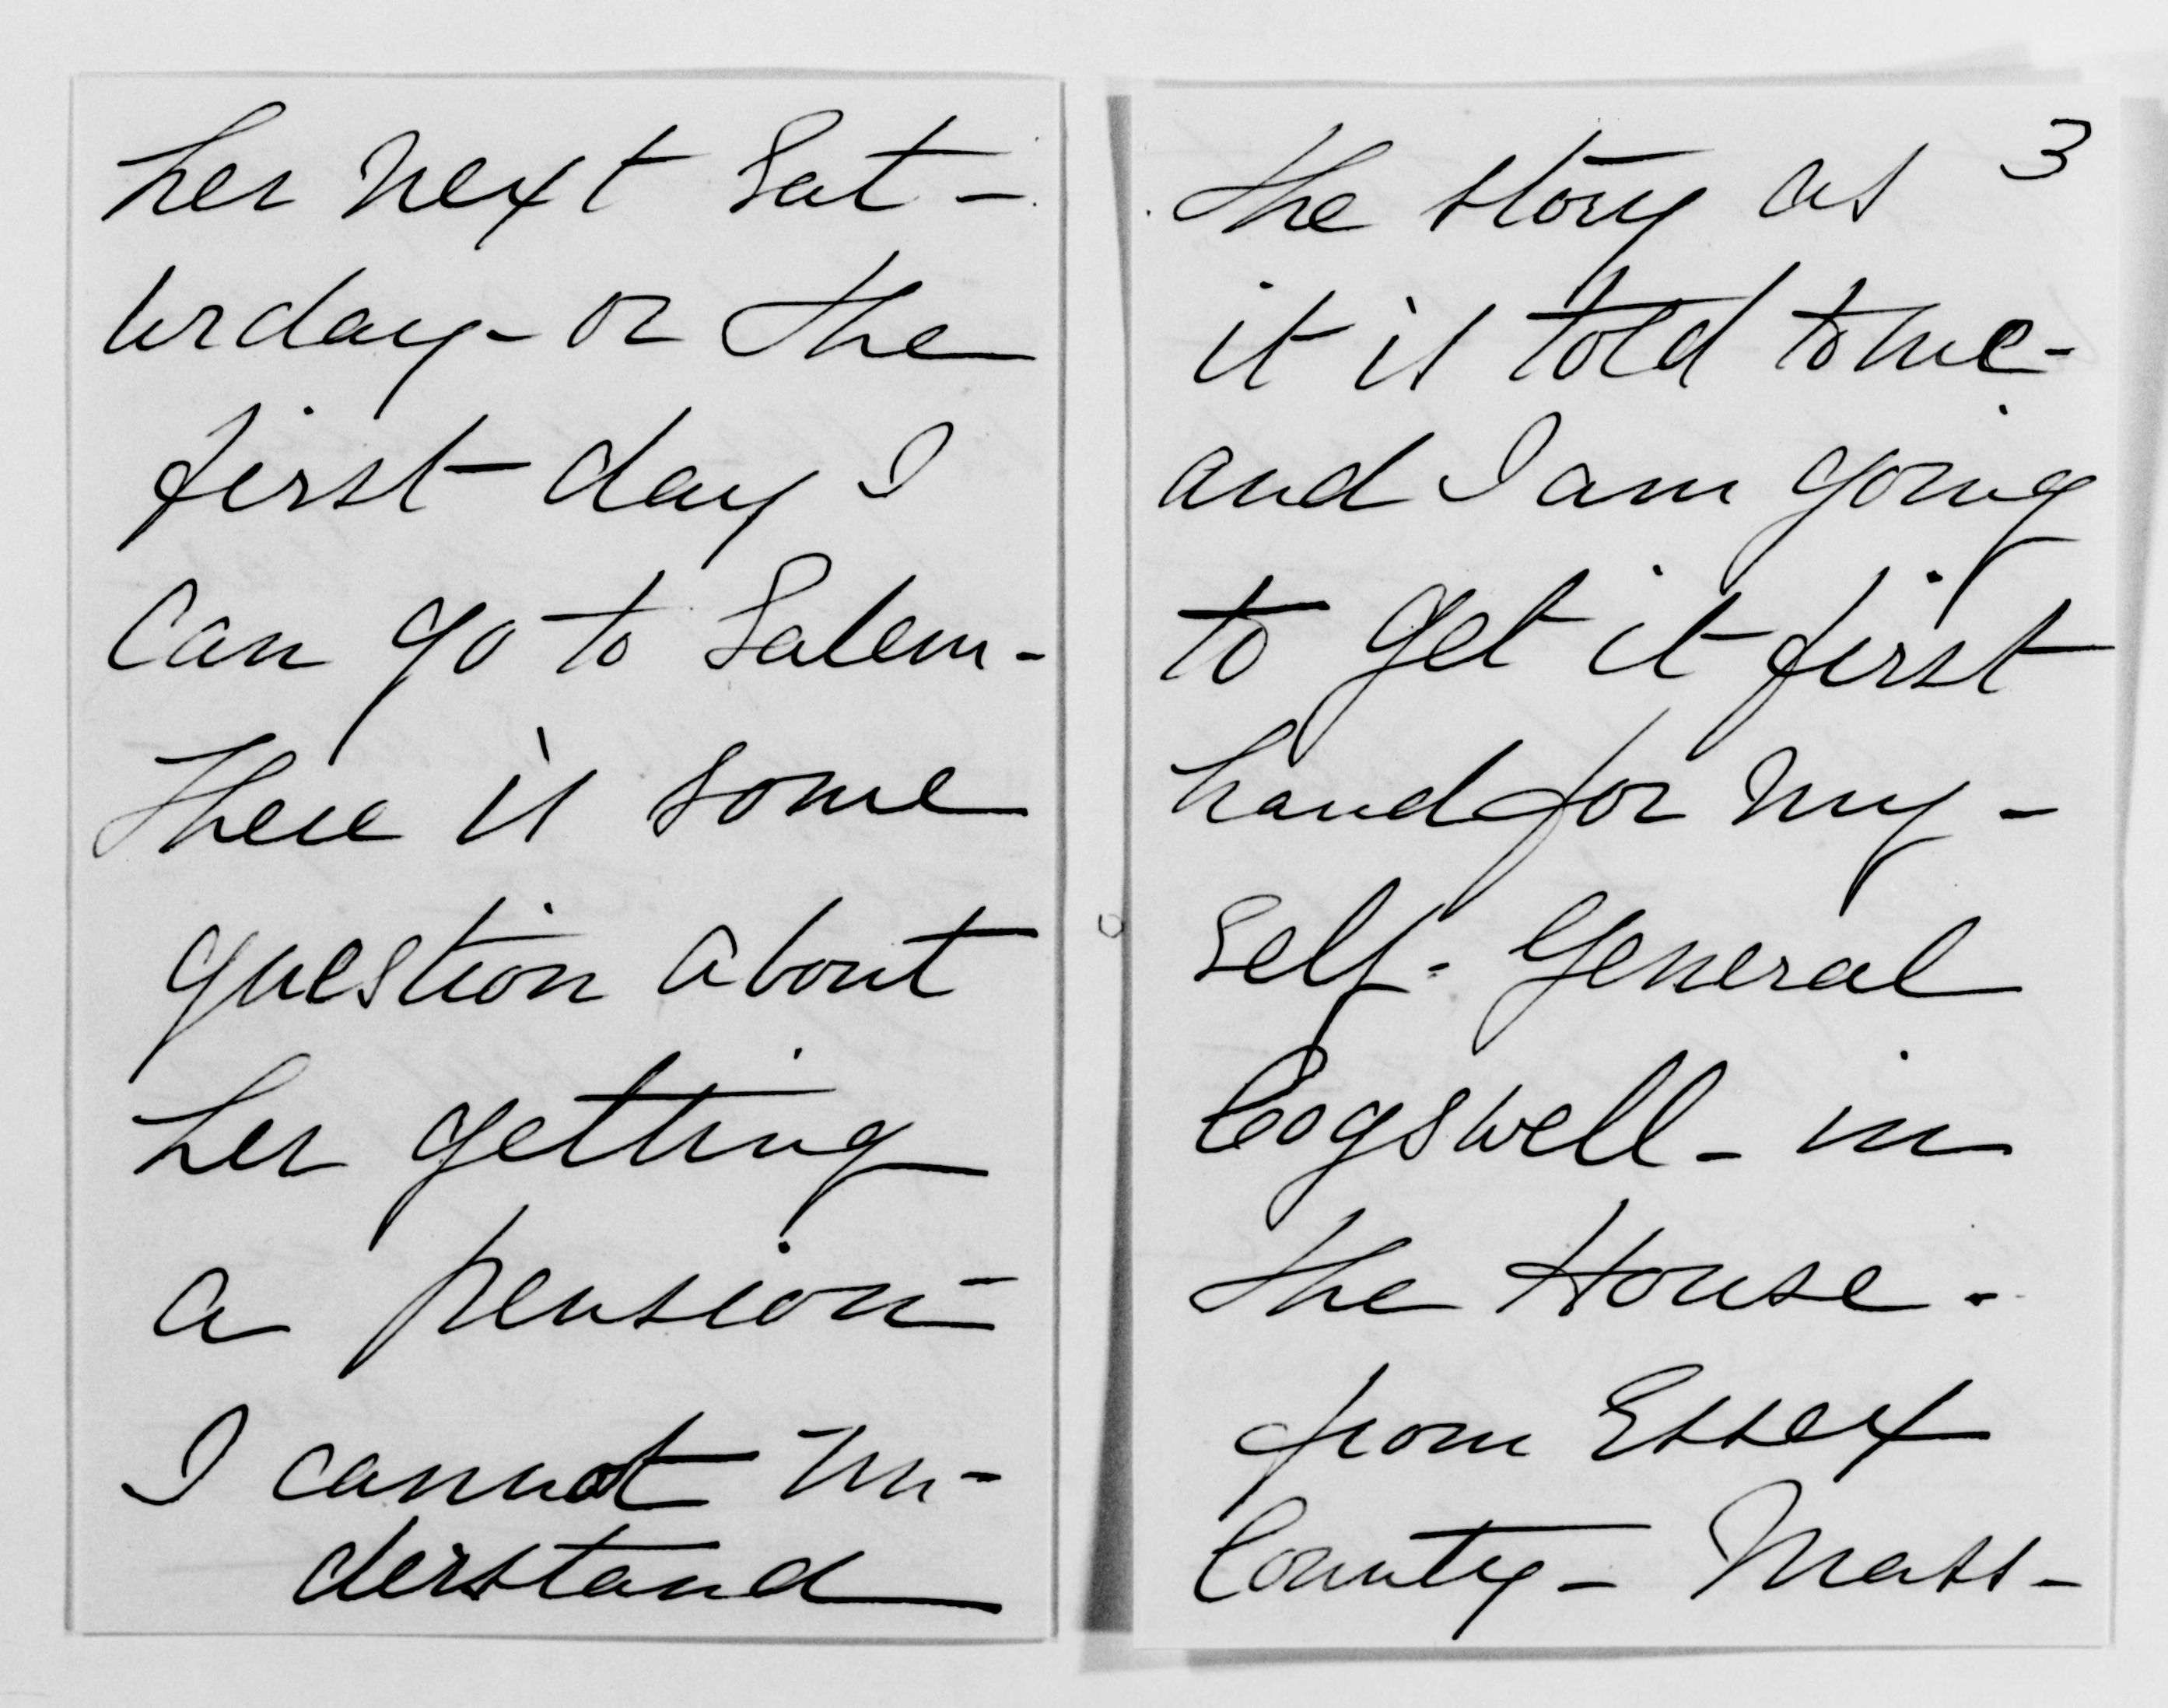 her next Sat-
urday - or the
first day I
can go to Salem -
There is some
question about
her getting
a pension -
I cannot un-
derstand
3
the story as
it is told to me -
and I am going
to get it first
hand for my-
self - General
Cogswell - in
the House -
from Essex
County - Mass -